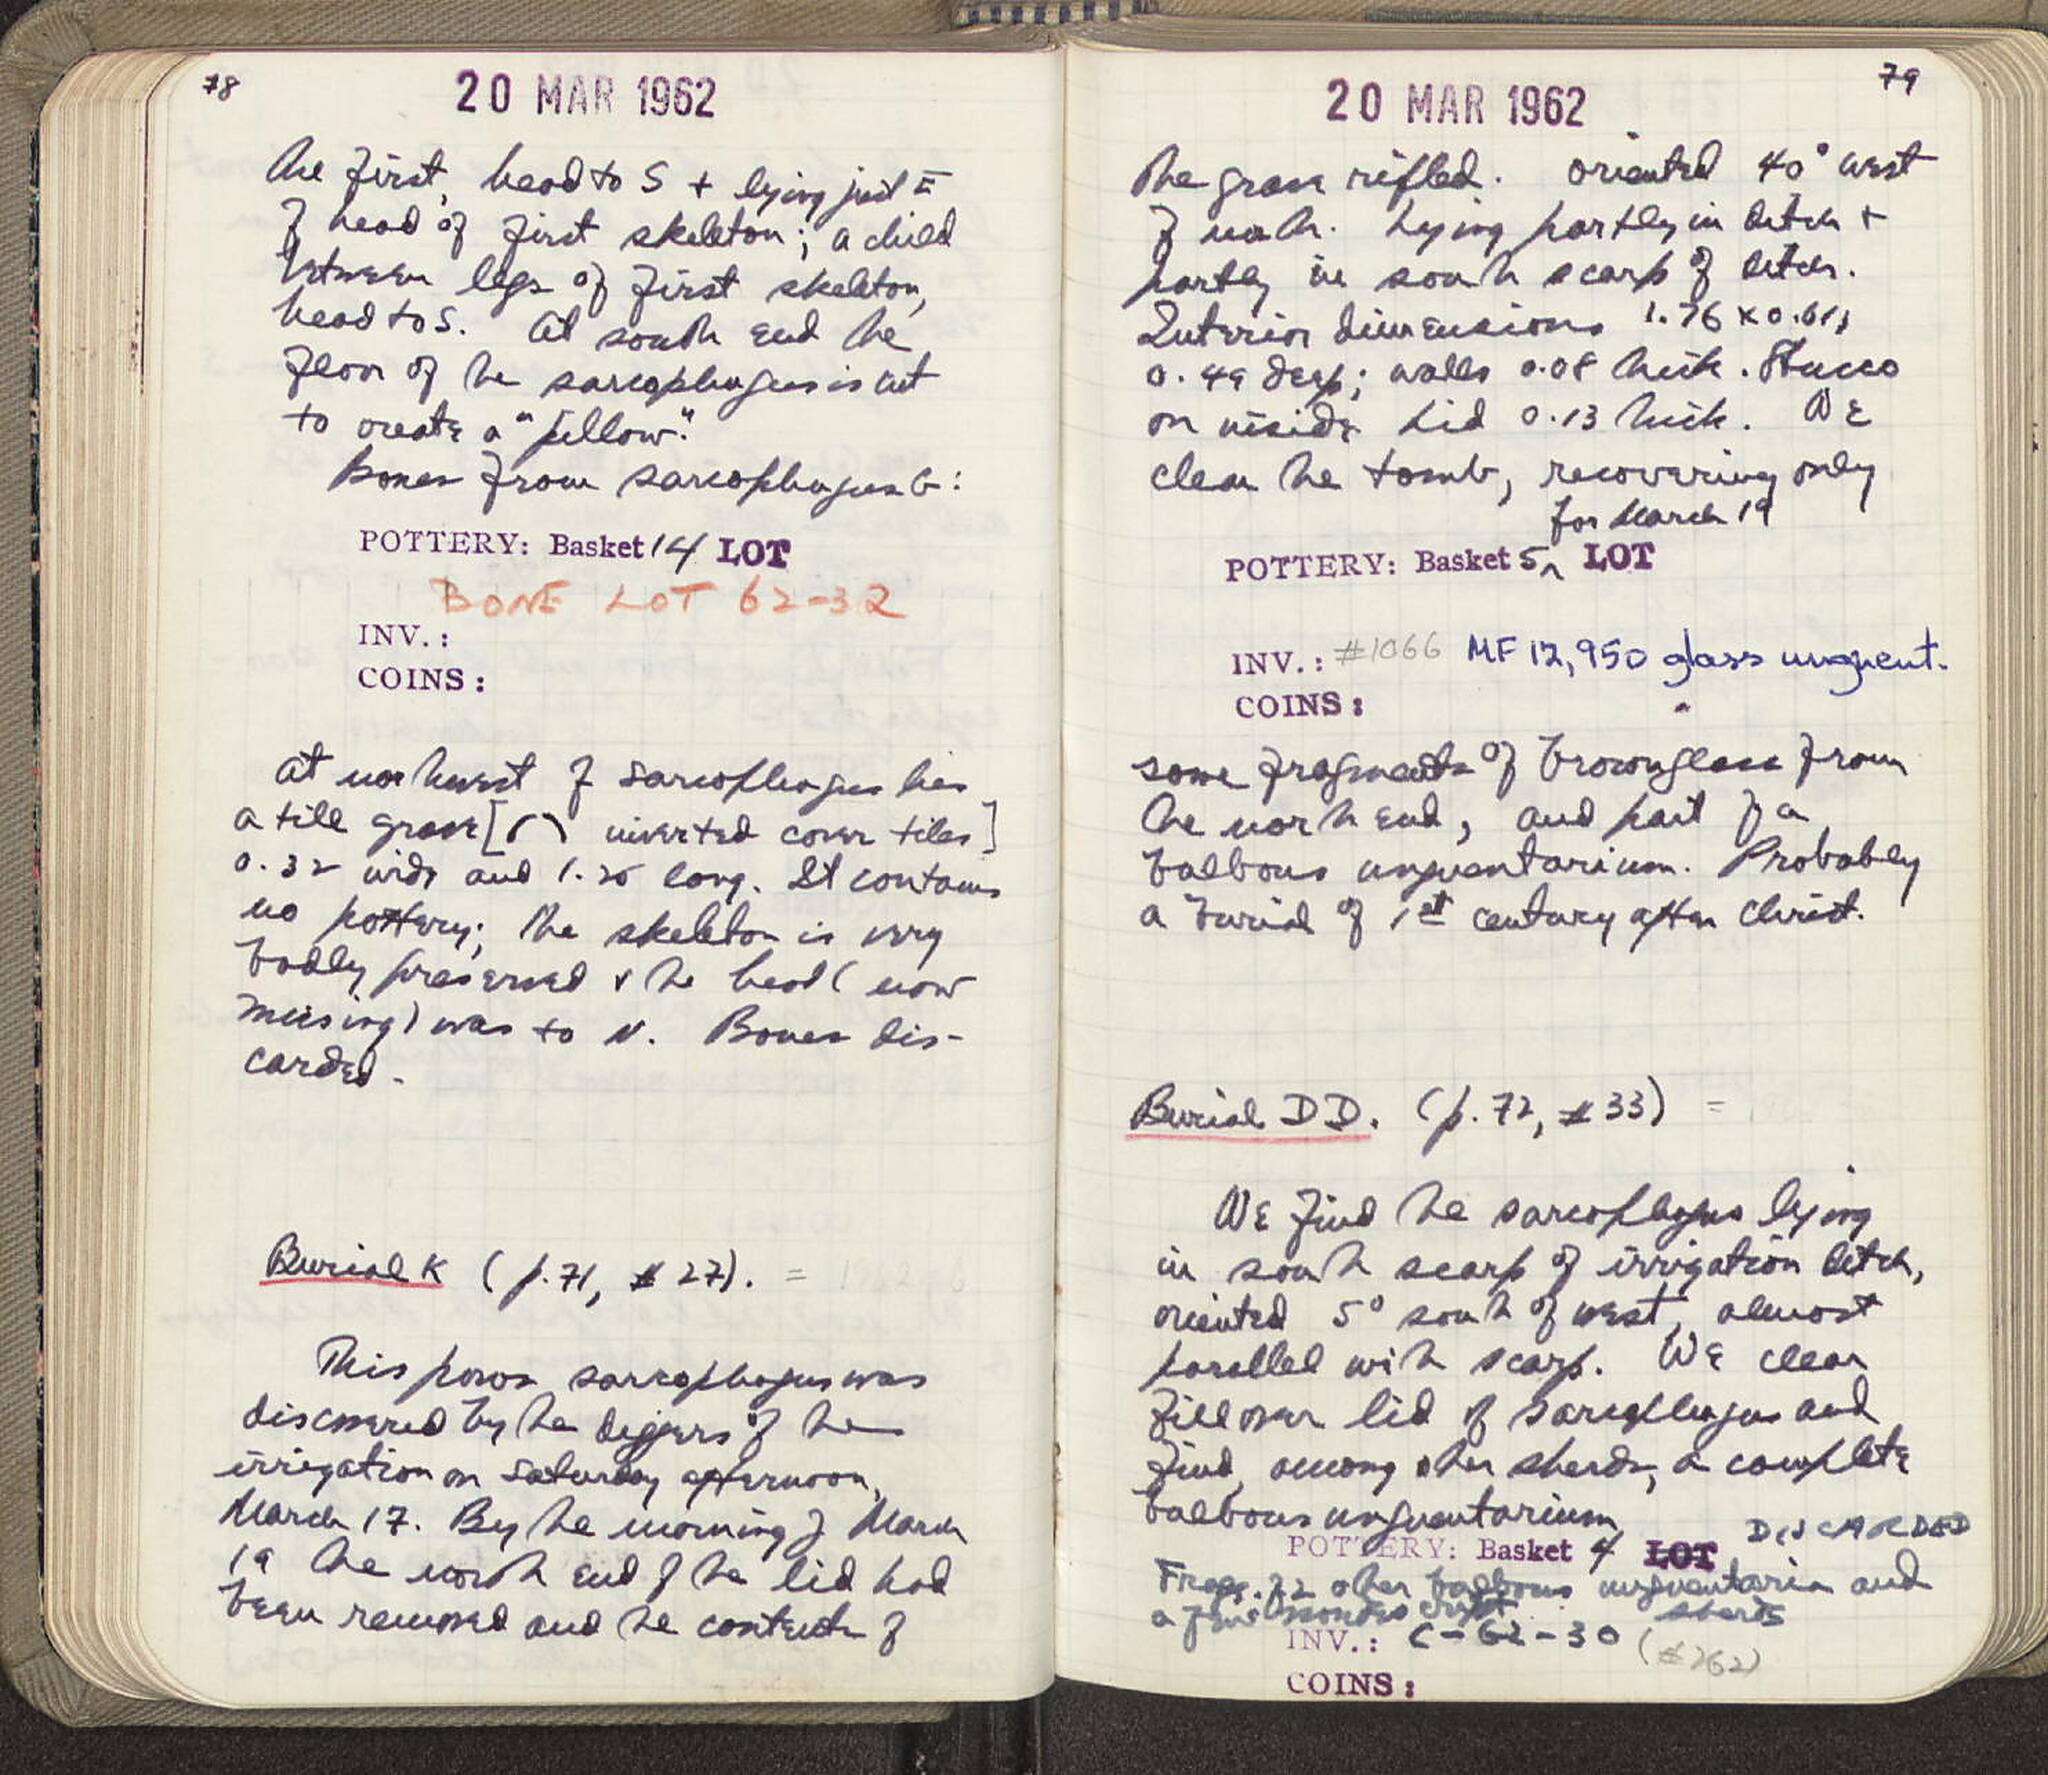 78
20 MAR 1962
the first, head to S + lying just E
of head of first skeleton; a child
between legs of first skeleton,
head to S. At south end the
floor of the sarcophagus is cut
to create a "pillow."
Bones from sarcophagus G:
POTTERY: Basket 14 LOT
BONE LOT 62-32
INV.:
COINS:
At northwest of sarcophagus lies
a tile grave [ inverted cover tiles]
0.32 wide and 1.25 long. It contains
no pottery; the skeleton is very
badly preserved & the head (now
missing) was to N. Bones dis-
carded.
Burial K (p.71, #27). =
This poros sarcophagus was
discovered by the diggers of the
irrigation on Saturday afternoon,
March 17. By the morning of March
19 the north end of the lid had
been removed and the contents of
79
20 MAR 1962
the grave rifled. Oriented 40° west
of north. Lying partly in ditch +
partly in south scarp of ditch.
Interior dimensions 1.76 x 0.61,
0.49 deep; walls 0.08 thick. Stucco
on inside. Lid 0.13 thick. We
clear the tomb, recovering only
for March 19
POTTERY: Basket 5 LOT
INV.: #1066 MF 12,950 glass unguent.
COINS:
some fragments of brown glass from
the north end, and part of a
bulbous unguentarium. Probably
a burial of 1st century after Christ.
Burial DD. (p.72, #33) =
We find the sarcophagus lying
in south scarp of irrigation ditch,
oriented 5° south of west, almost
parallel with scarp. We clear
fill over lid of sarcophagus and
find, among other sherds, a complete
bulbous unguentarium
DISCARDED
POTTERY: Basket 4 LOT
Frags. 22 other bulbous unguentaria and
a few sherds
INV.: C-62-30 (#262)
COINS: